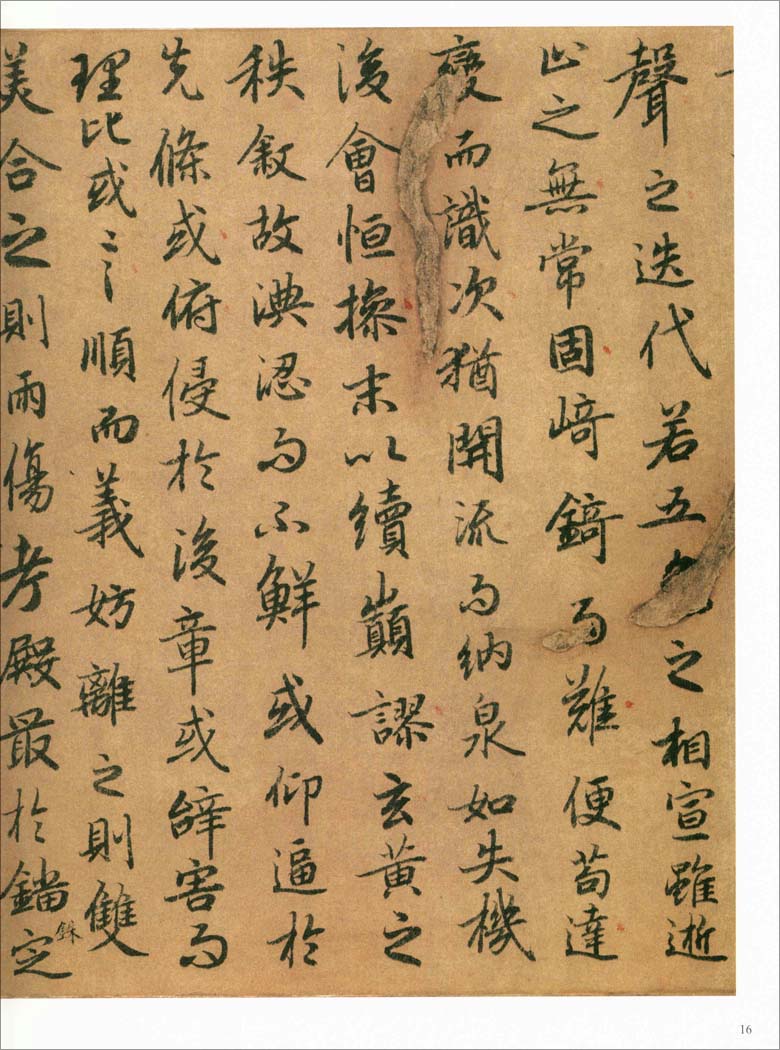 聲之迭代若五色之相宣雖逝
止之無常固崎錡而難便苟達
變而識次猶開流而納泉如失機
後會恒操末以續巔謬玄黃之
秩叙故淟涊而不鮮或仰逼於
先條或俯侵於後章或辭害而
理比或言順而義妨離之則雙
美合之則兩傷考殿最於錙銖定
16